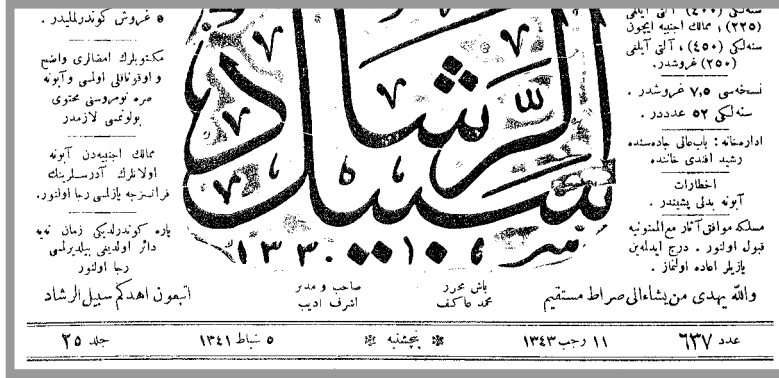 سنه‌لكی (٤٠٠) آلتی آیلغی
(٢٢٥) ؛ ممالك اجنبیه ایچون
سنه‌لكی (٤٥٠) ، آلتی آیلغی
(٢٥٠) غروشدر.
نسخه‌سی ٧,٥ غروشدر .
سنه‌لكی ٥٢ عدددر .
اداره‌خانه : باب‌عالی جاده‌سنده
رشید افندی خاننده
اخطارات
آبونه بدلی پشیندر .
مسلكه موافق آثار مع‌الممنونیه
قبول اولنور . درج ایدلمه‌ین
یازیلر اعاده اولنماز .
سبیل الرشاد
١٣٣٠
باش محرر
محمد عاكف
صاحب و مدیر
اشرف ادیب
ه غروش كوندرلملیدر .
مكتوبلرك امضالری واضح
و اوقوناقلی اولمسی و آبونه
صره نومروسنی محتوی
بولونمسی لازمدر
ممالك اجنبیه‌دن آبونه
اولانلرك آدرسلرینك
فرانسزجه یازلمسی رجا اولنور.
پاره كوندرلدیكی زمان نه‌یه
دائر اولدیغی بیلدیرلمسی
رجا اولنور
والله یهدی من یشاء الی صراط مستقیم
اتبعون اهدكم سبیل الرشاد
عدد ٦٣٧
١١ رجب ١٣٤٣
پنجشنبه
٥ شباط ١٣٤١
جلد ٢٥